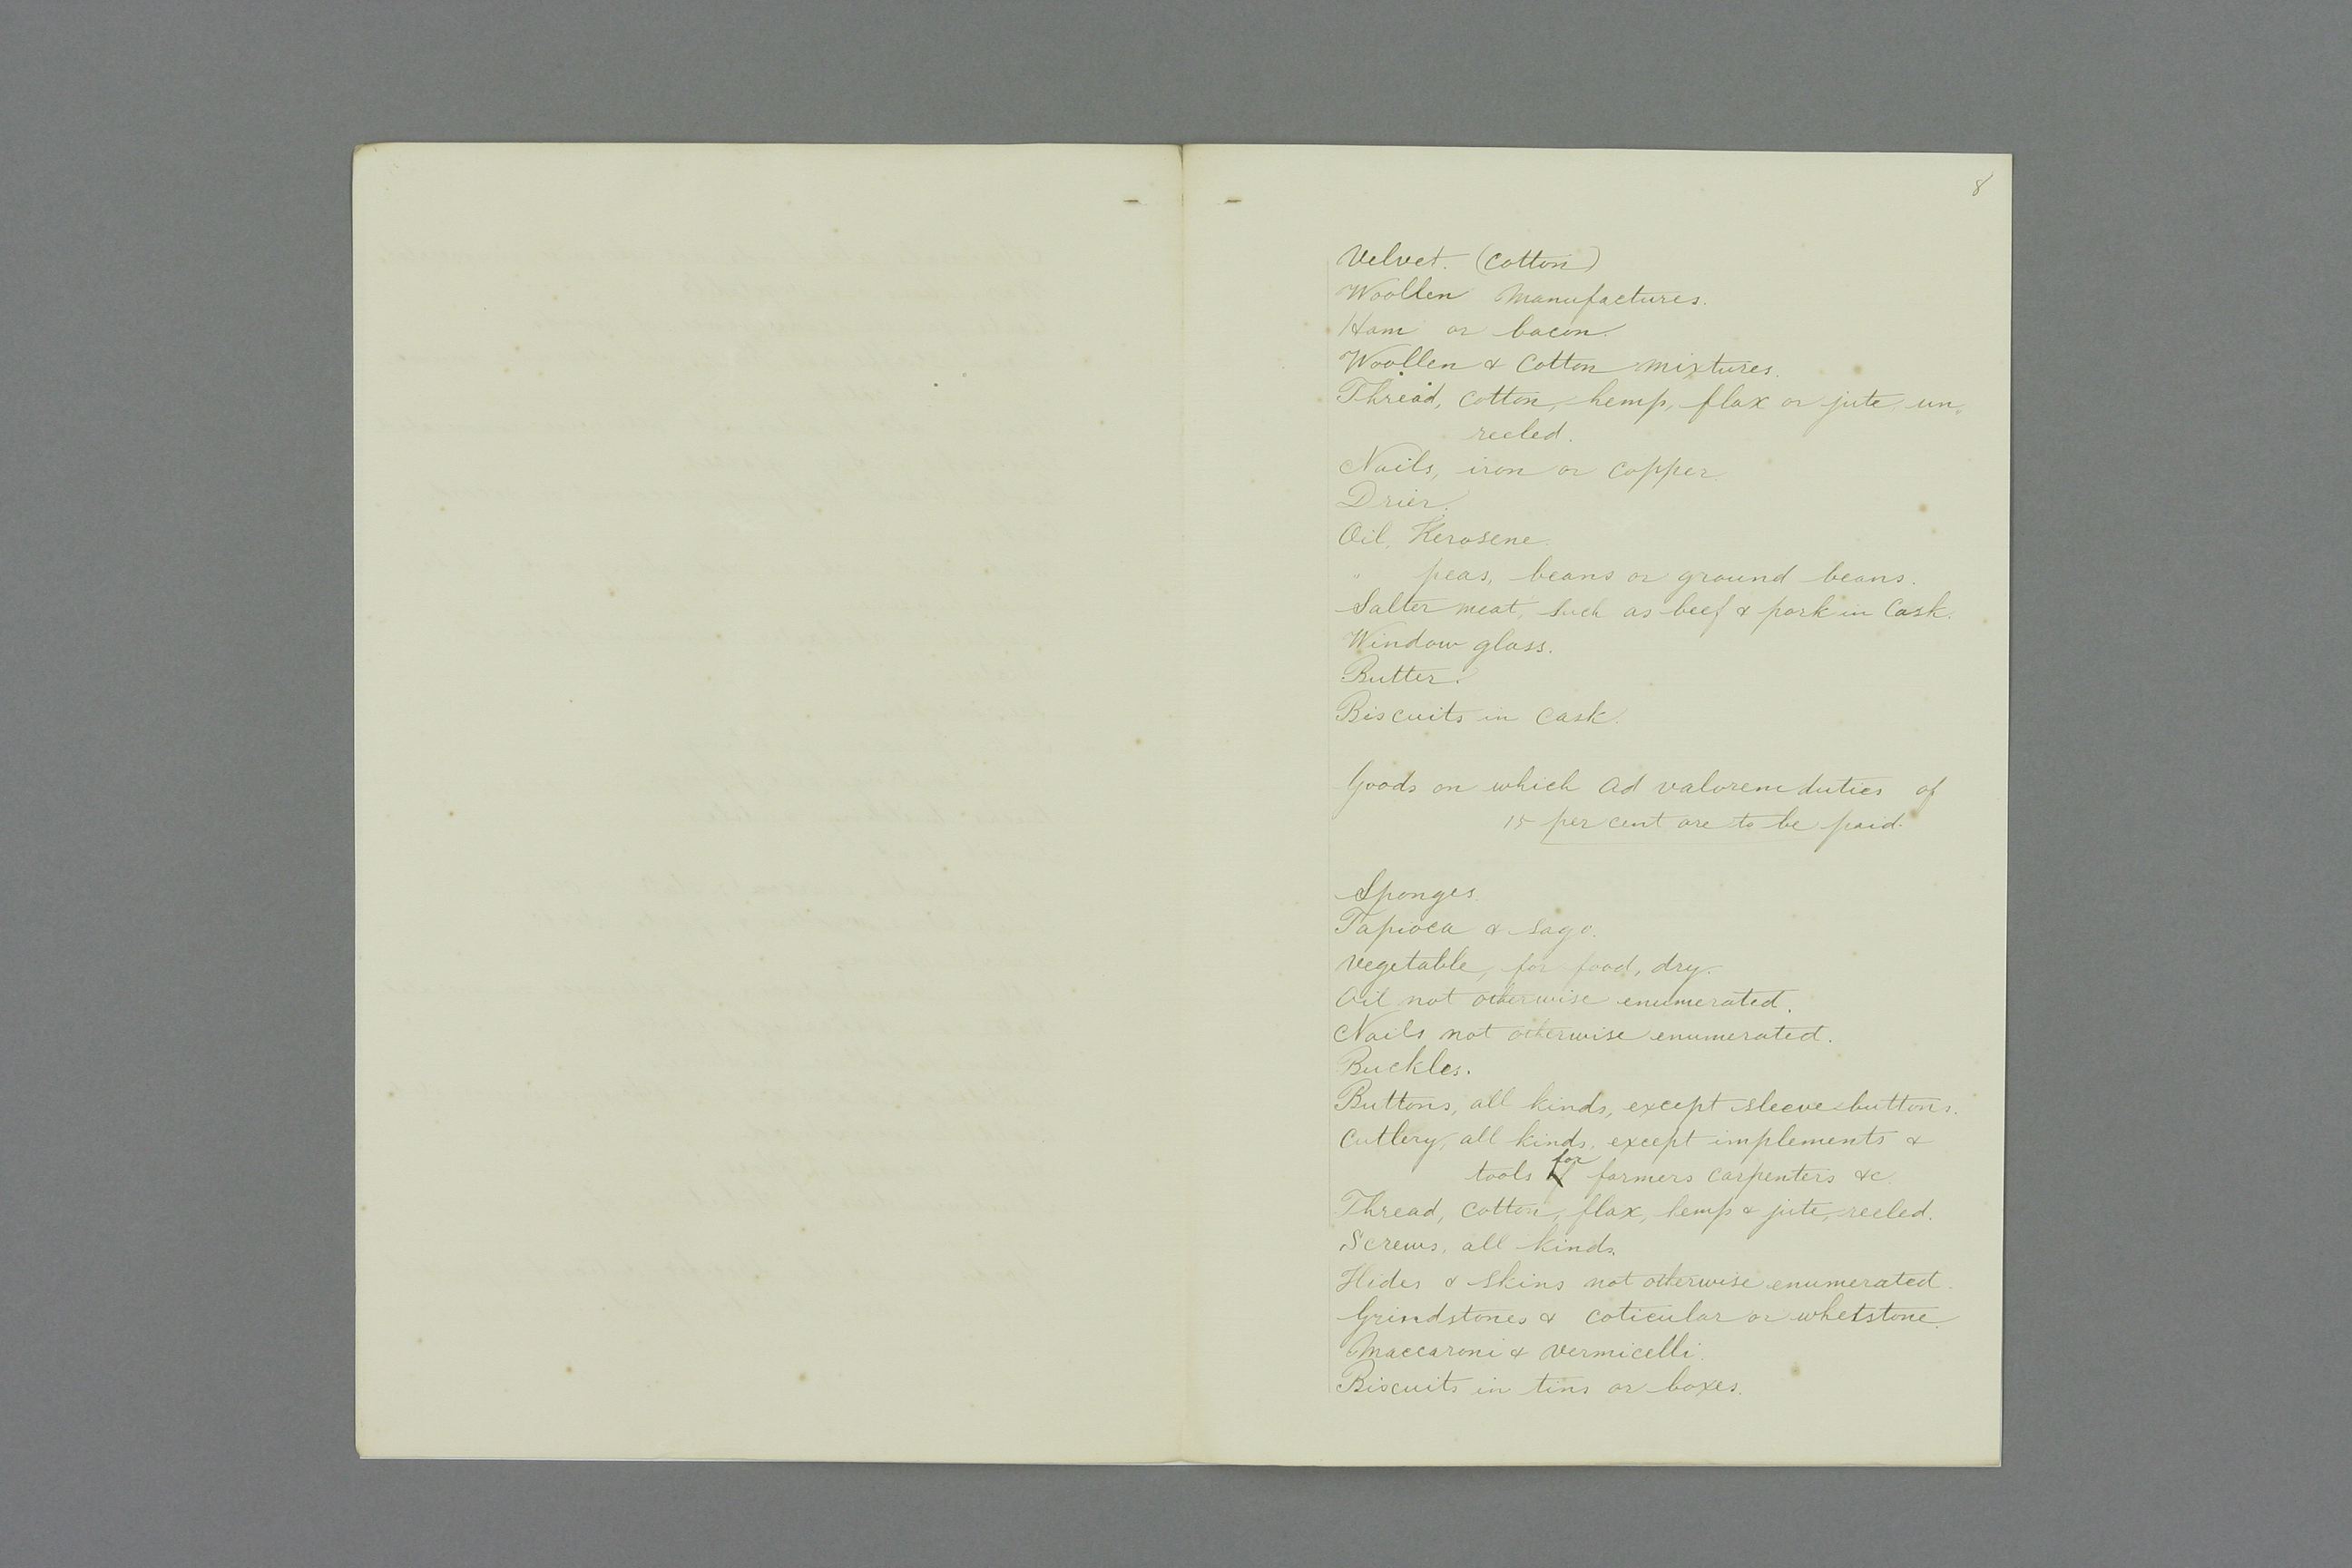 8
Velvet. (Cotton)
Woollen Manufactures.
Ham or bacon.
Woollen & Cotton mixtures.
Thread, Cotton, hemp, flax or jute, un-
reeled.
Nails, iron or Copper.
Drier.
Oil, Kerosene.
" peas, beans or ground beans.
Salter meat, Such as beef & pork in Cask.
Window glass.
Butter.
Biscuits in Cask.
Goods on which Ad valorem duties of
15 per cent are to be paid.
Sponges.
Tapioca & Sago.
Vegetable, for food, dry.
Oil not otherwise enumerated.
Nails not otherwise enumerated.
Buckles.
Buttons, all kinds, except sleeve buttons.
Cutlery, all kinds, except implements &
tools for farmers Carpenters &c.
Thread, Cotton, flax, hemp & jute, reeled.
Screws, all kinds.
Hides & Skins not otherwise enumerated.
Grindstones & coticular or whetstone.
Maccaroni & Vermicelli.
Biscuits in tins or boxes.